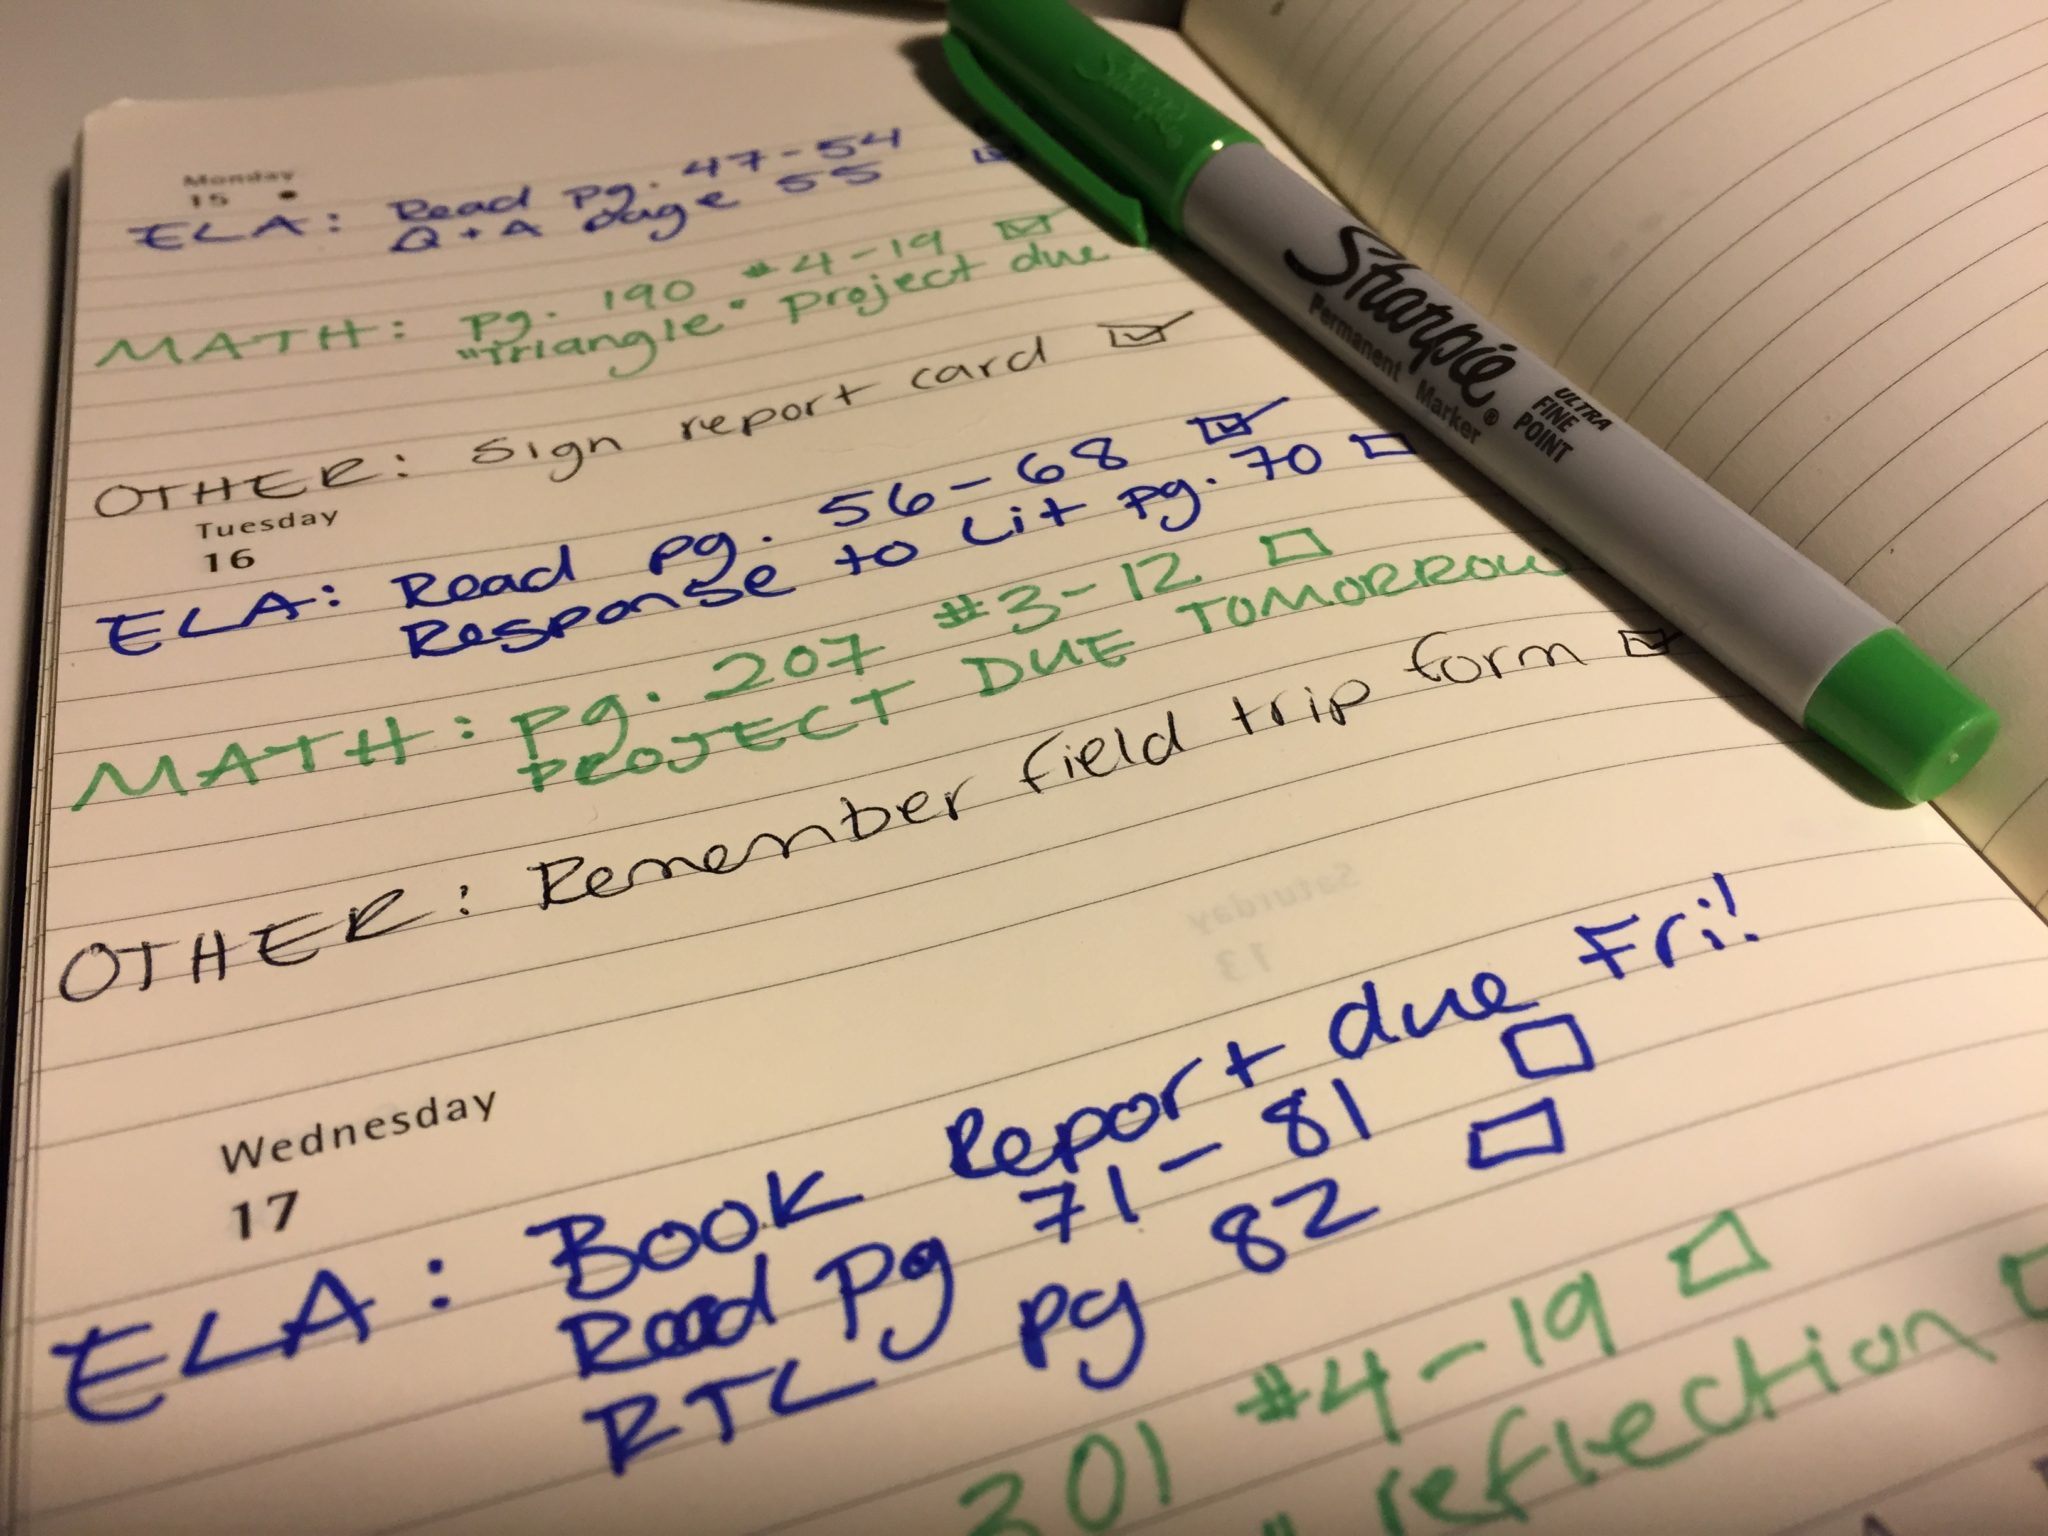 Monday
15
ELA: Read pg. 47-54
Q + A page 55
MATH: pg. 190 #4-19
"Triangle" Project due
OTHER: Sign report card
Tuesday
16
ELA: Read pg. 56-68
Response to Lit pg. 70
MATH: pg. 207 #3-12
PROJECT DUE TOMORROW
OTHER: Remember field trip form
Wednesday
17
ELA: Book Report due Fri!
Read pg 71-81
RTL pg 82
201 #4-19
" reflection
Saturday
13
Sharpie
Sharpie®
Permanent Marker
ULTRA
FINE
POINT